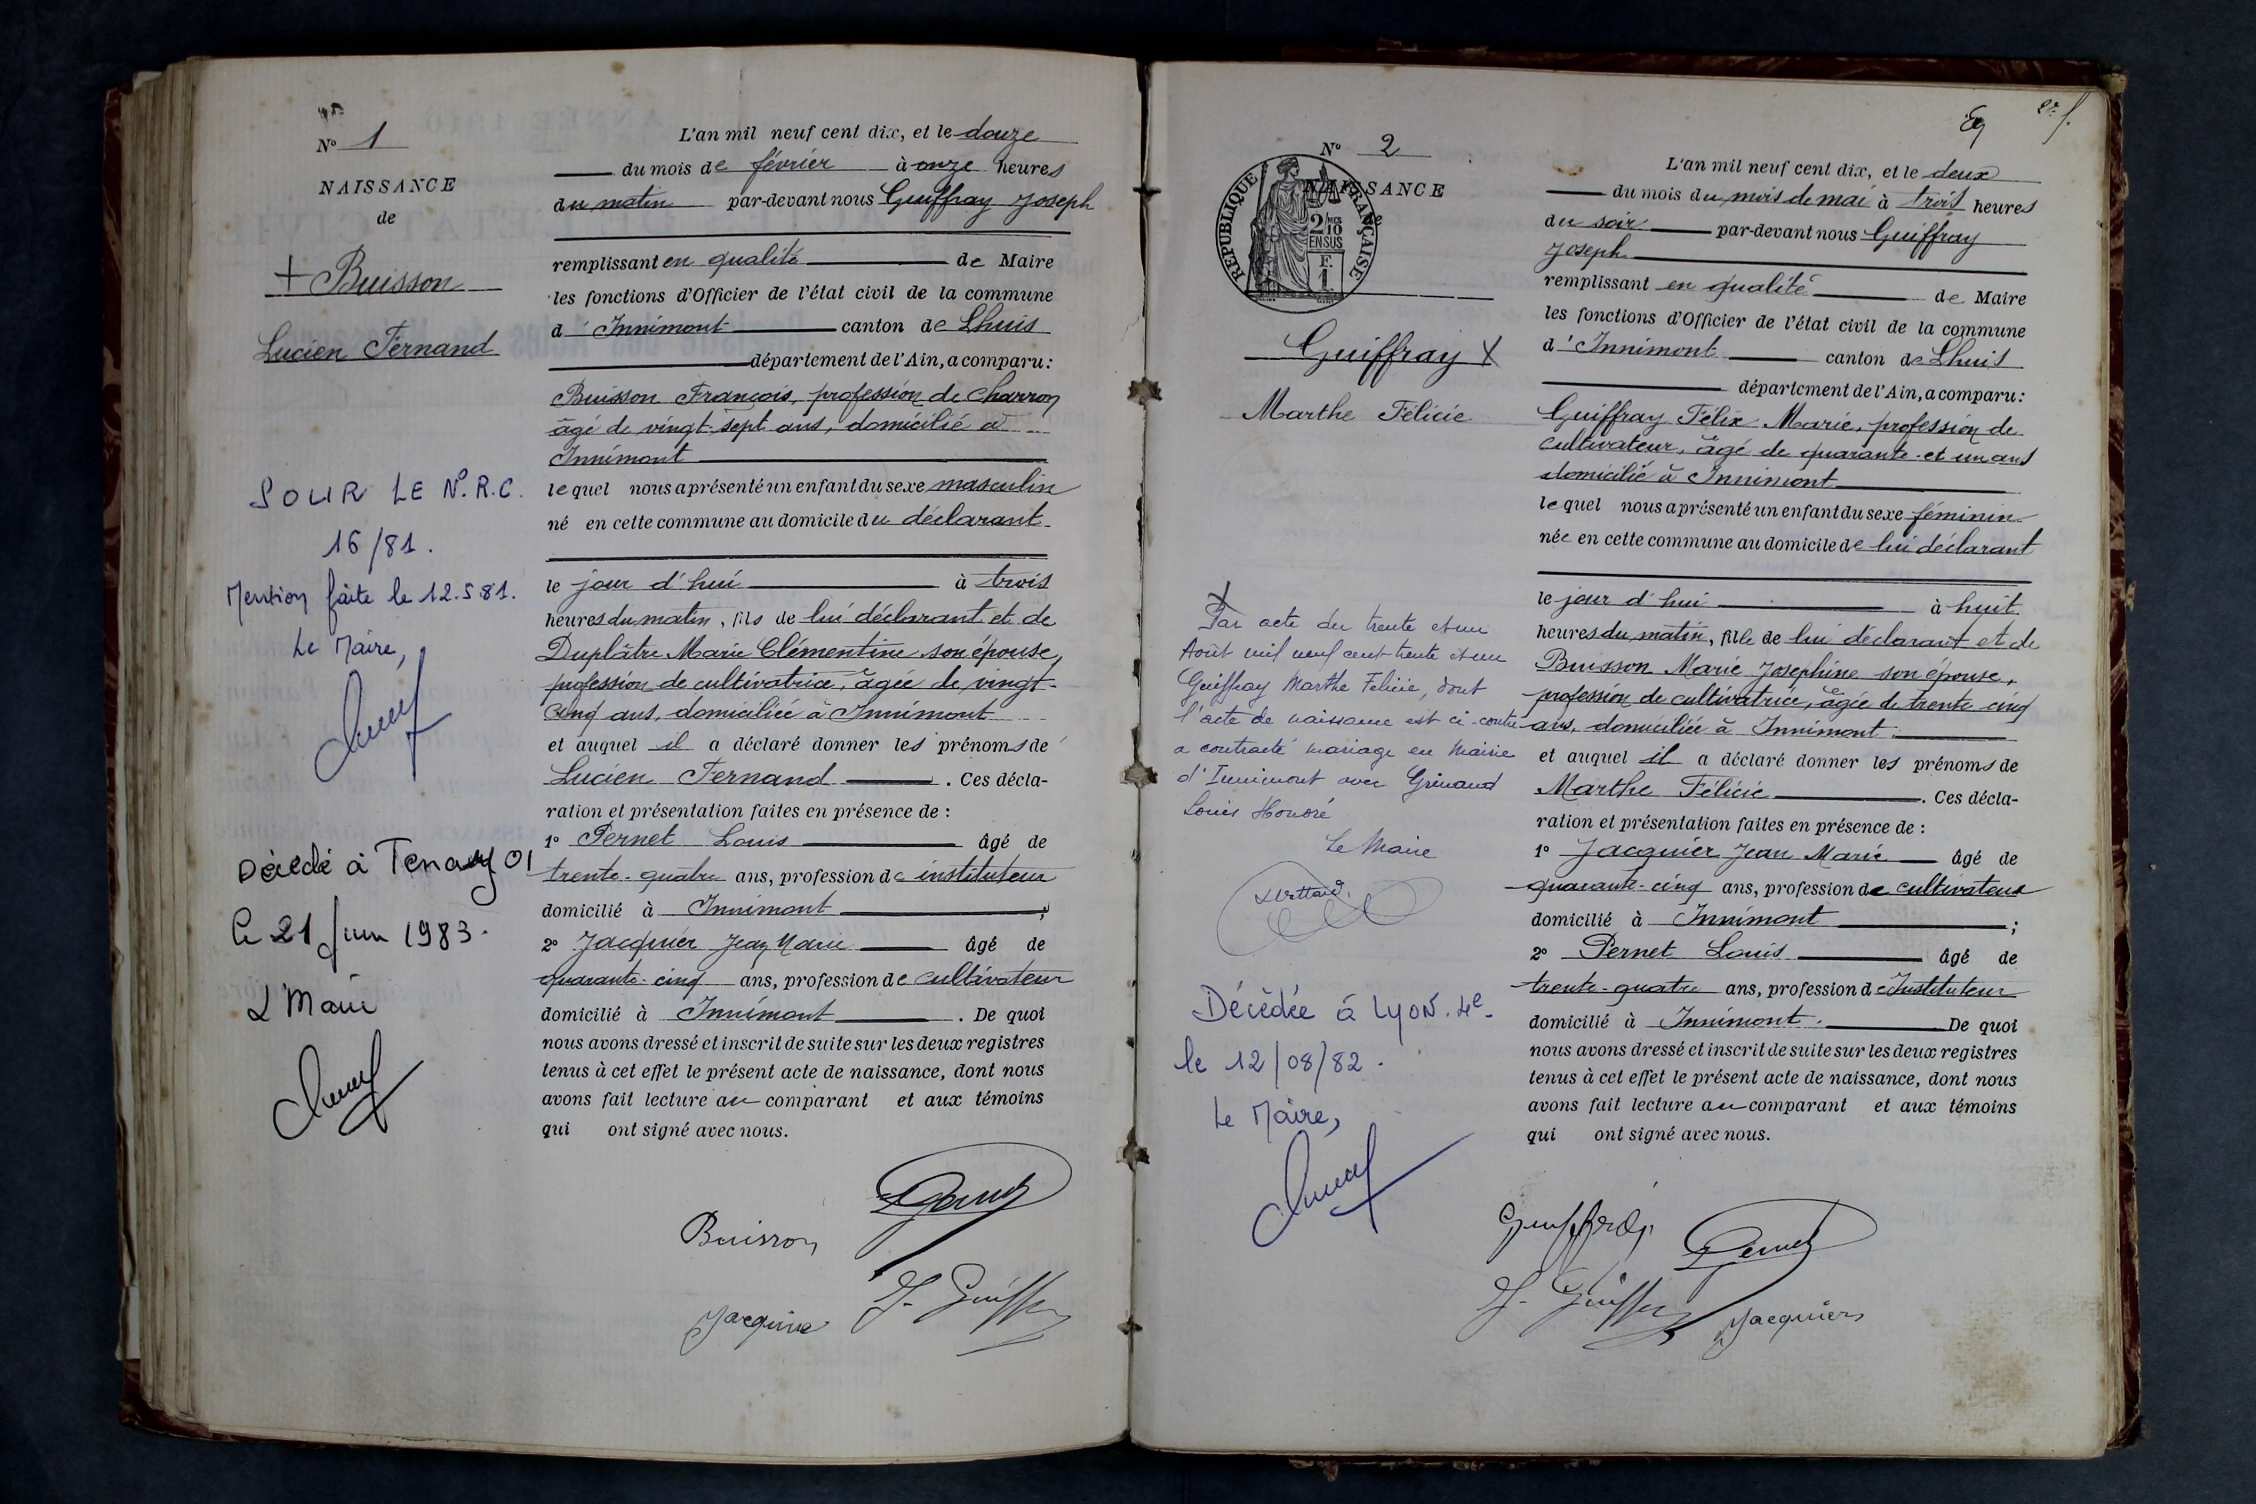 N° 1
NAISSANCE
de
+ Buisson
Lucien Fernand
SOUR LE N°. R.C.
16/81.
Mention faite le 12.5 81.
Le Maire,
Décédé à Tenay 01
le 21 juin 1983.
L Maire
L'an mil neuf cent dix, et le douze
du mois de février à onze heures
du matin par-devant nous Guiffray Joseph
remplissant en qualité de Maire
les fonctions d'Officier de l'état civil de la commune
d'Innimont canton de Lhuis
département de l'Ain, a comparu:
Buisson François, profession de charron
âgé de vingt-sept ans, domicilié à
Innimont
lequel nous a présenté un enfant du sexe masculin
né en cette commune au domicile du déclarant
le jour d'hui à trois
heures du matin, fils de lui déclarant et de
Duplâtre Marie Clémentine son épouse,
profession de cultivatrice, âgée de vingt-
cinq ans, domiciliée à Innimont
et auquel il a déclaré donner les prénoms de
Lucien Fernand. Ces décla-
ration et présentation faites en présence de :
1° Pernet Louis âgé de
trente-quatre ans, profession de instituteur
domicilié à Innimont;
2° Jacquier Jean Marie âgé de
quarante-cinq ans, profession de cultivateur
domicilié à Innimont. De quoi
nous avons dressé et inscrit de suite sur les deux registres
tenus à cet effet le présent acte de naissance, dont nous
avons fait lecture au comparant et aux témoins
qui ont signé avec nous.
Buisson
Pernet
Jacquier
J. Guiffray
N° 2
NAISSANCE
REPUBLIQUE FRANÇAISE
2/10
EN SUS
F.
1
Guiffray X
Marthe Félicie
X
Par acte du trente et un
Août mil neuf cent trente et un
Guiffray Marthe Félicie, dont
l'acte de naissance est ci-contre
a contracté mariage en Mairie
d'Innimont avec Grinand
Louis Honoré
Le Maire
Décédée à Lyon. 4e.
le 12/08/82.
Le Maire,
L'an mil neuf cent dix, et le deux
du mois du mois de mai à trois heures
du soir par-devant nous Guiffray
Joseph
remplissant en qualité de Maire
les fonctions d'Officier de l'état civil de la commune
d'Innimont canton de Lhuis
département de l'Ain, a comparu:
Guiffray Félix Marie, profession de
cultivateur, âgé de quarante-et un ans
domicilié à Innimont
lequel nous a présenté un enfant du sexe féminin
née en cette commune au domicile de lui déclarant
le jour d'hui à huit
heures du matin, fille de lui déclarant et de
Buisson Marie Josephine son épouse,
profession de cultivatrice, âgée de trente cinq
ans, domiciliée à Innimont
et auquel il a déclaré donner les prénoms de
Marthe Félicie. Ces décla-
ration et présentation faites en présence de :
1° Jacquier Jean Marie âgé de
quarante-cinq ans, profession de cultivateur
domicilié à Innimont;
2° Pernet Louis âgé de
trente-quatre ans, profession de Instituteur
domicilié à Innimont. De quoi
nous avons dressé et inscrit de suite sur les deux registres
tenus à cet effet le présent acte de naissance, dont nous
avons fait lecture au comparant et aux témoins
qui ont signé avec nous.
Guiffray
Pernet
J. Guiffray
Jacquier